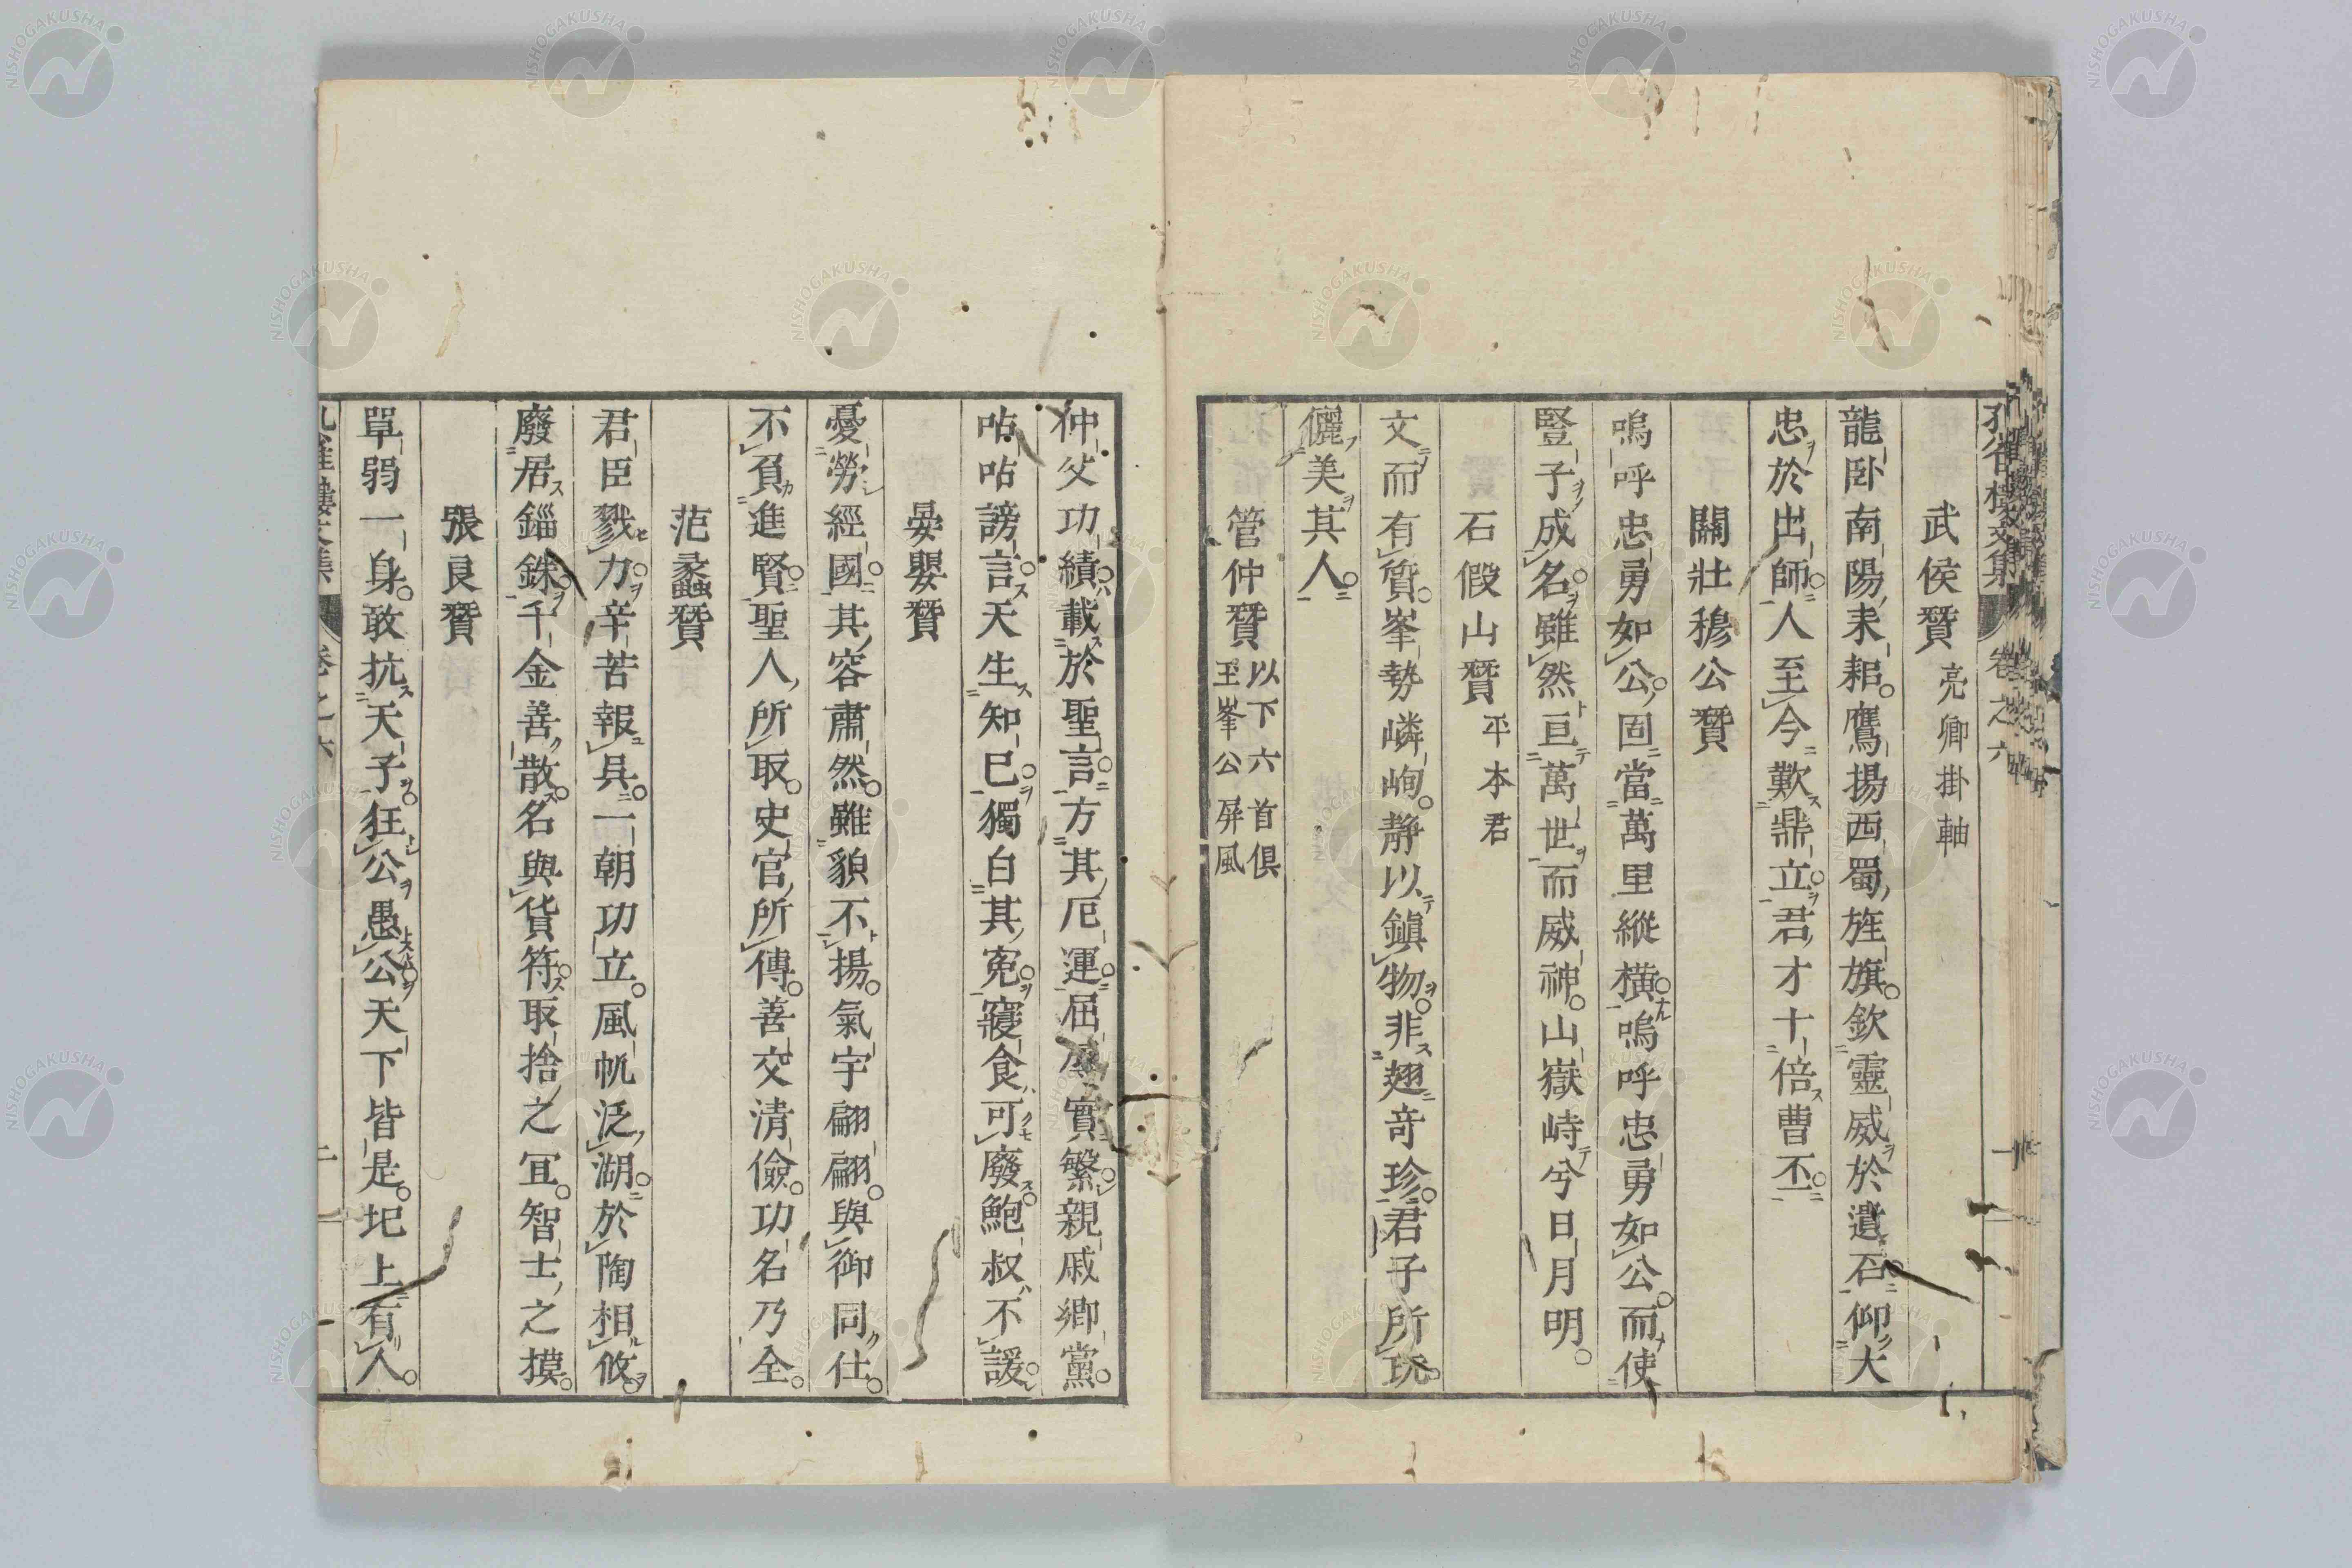 武侯贊 亮卿掛軸
龍卧南陽耒耜。鷹揚西蜀旌旗。欽靈威於遺石。仰大
忠於出師。人至今歎鼎立。君才十倍曹丕。
關壯穆公贊
嗚呼忠勇如公。固當萬里縱橫。嗚呼忠勇如公。而使
豎子成名。雖然亘萬世而威神。山嶽峙兮日月明。
石假山贊 平本君
文而有質。峯勢嶙峋。靜以鎭物。非翅竒珍。君子所玩。
儷美其人。
管仲贊 以下六首俱至峯公屏風
仲父功績。載於聖言。方其厄運。屈 實繁。親戚鄉黨。
呫呫謗言。天生知己。獨白其寃。寢食可廢。鮑叔不諼。
晏嬰贊
憂勞經國。其容肅然。雖貌不揚。氣宇翩翩。與御同仕。
不負進賢。聖人所取。史官所傳。善交清儉。功名乃全。
范蠡贊
君臣戮力。辛苦報具。一朝功立。風帆泛湖。於陶相攸。
廢居錙銖。千金善散。名與貨符。取捨之冝。智士之摸。
張良贊
單弱一身。敢抗天子。狂公愚公。天下皆是。圯上有人。
孔雀樓文集 卷之六
NISHOGAKUSHA